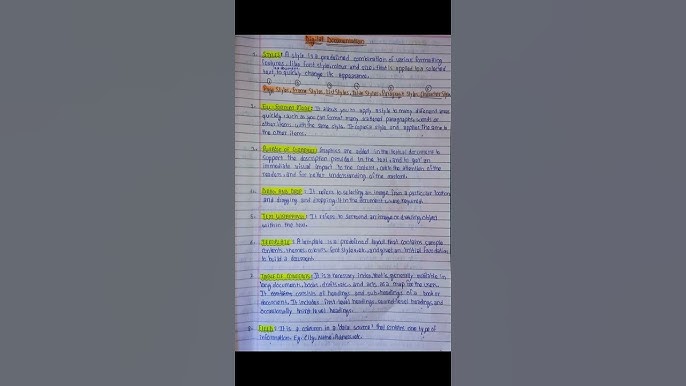 Digital Documentation
1. Styles: A style is a predefined combination of various formatting
features, like font style, colour and size, that is applied to a selected
text, to quickly change its appearance.
Page Styles, Frame Styles, List Styles, Table Styles, Paragraph Styles, Character Styles
2. Fill Format Mode: It allows you to apply a style to many different areas
quickly, such as you can format many scattered paragraphs, words or
other items with the same style. It copies a style and applies the same to
the other items.
3. Purpose of Graphics: Graphics are added in the textual document to
support the description provided in the text, and to get an
immediate visual impact to the content, catch the attention of the
readers, and for better understanding of the content.
4. Drag and Drop: It refers to selecting an image from a particular location
and dragging and dropping it in the document where required.
5. Text Wrapping: It refers to surround an image or drawing object
within the text.
6. Template: A template is a predefined layout that contains sample
contents, themes, colours, font style, etc, and give an initial foundation
to build a document.
7. Table of contents: It is a necessary index that is generally available in
long documents, book, drafts, etc and acts as a map for the users.
It consists of headings and sub-headings of a book or
document. It includes first-level headings, second-level headings, and
occasionally third level headings.
8. Field: It is a column in a 'data source' that contains one type of
information. Eg: City, Name, Address, etc.